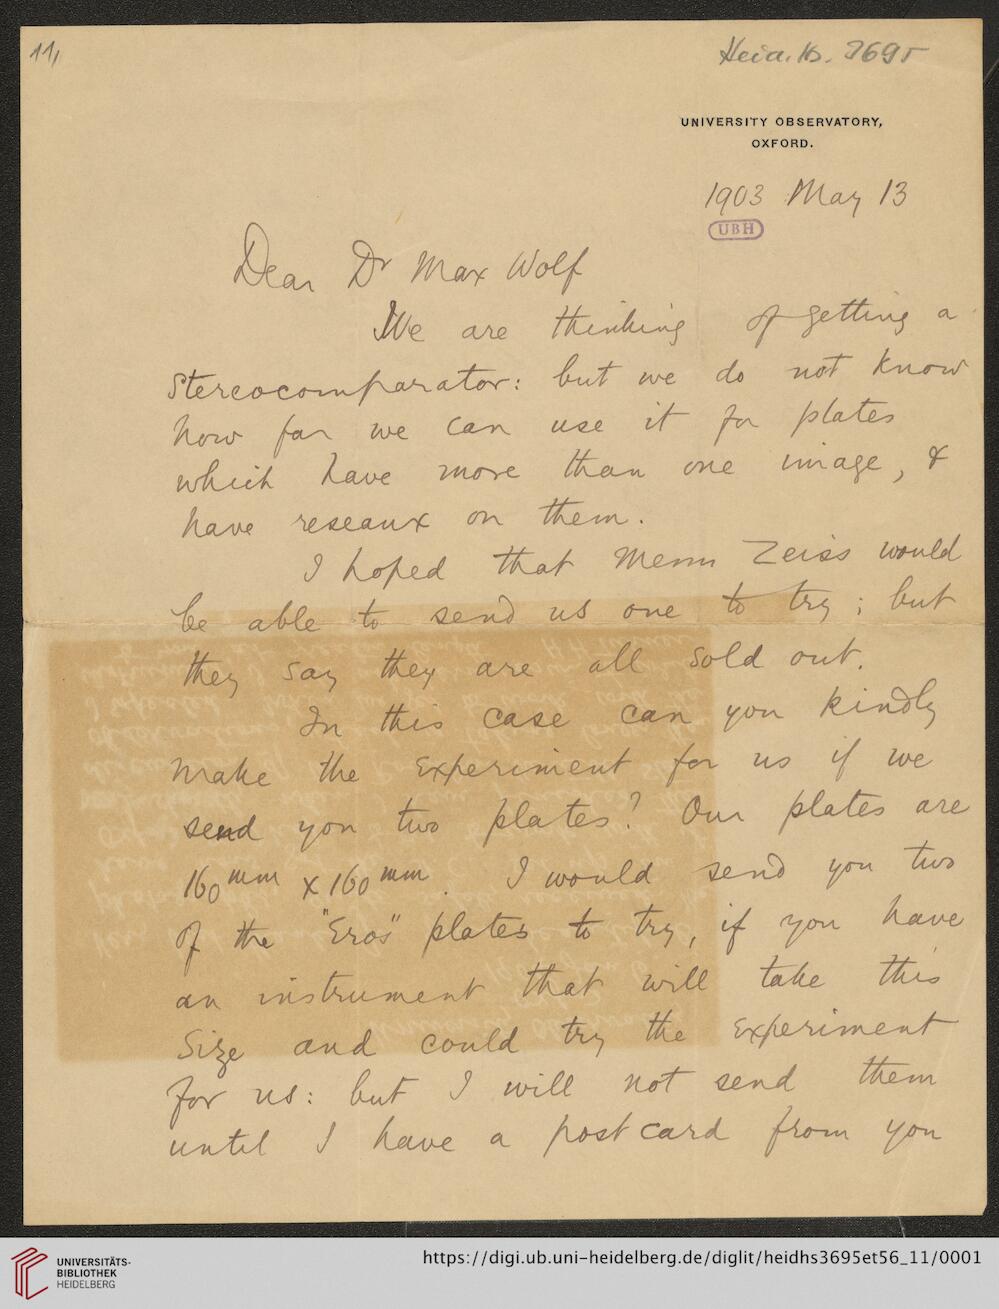 11,
Heid. Hs. 3695
UNIVERSITY OBSERVATORY,
OXFORD.
1903 May 13
UBH
Dear Dr Max Wolf
We are thinking of getting a
stereocomparator: but we do not know
how far we can use it for plates
which have more than one image, &
have reseaux on them.
I hoped that Messrs Zeiss would
be able to send us one to try; but
they say they are all sold out.
In this case can you kindly
make the experiment for us if we
send you two plates? Our plates are
160mm x 160mm. I would send you two
of the "Eros" plates to try, if you have
an instrument that will take this
size and could try the experiment
for us: but I will not send them
until I have a post card from you
UNIVERSITÄTS-
BIBLIOTHEK
HEIDELBERG
https://digi.ub.uni-heidelberg.de/diglit/heidhs3695et56_11/0001